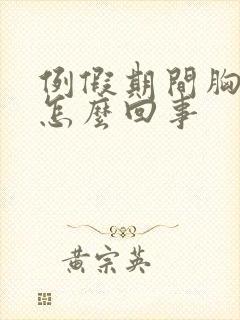 例假期間胸
怎麼回事
黄宗英